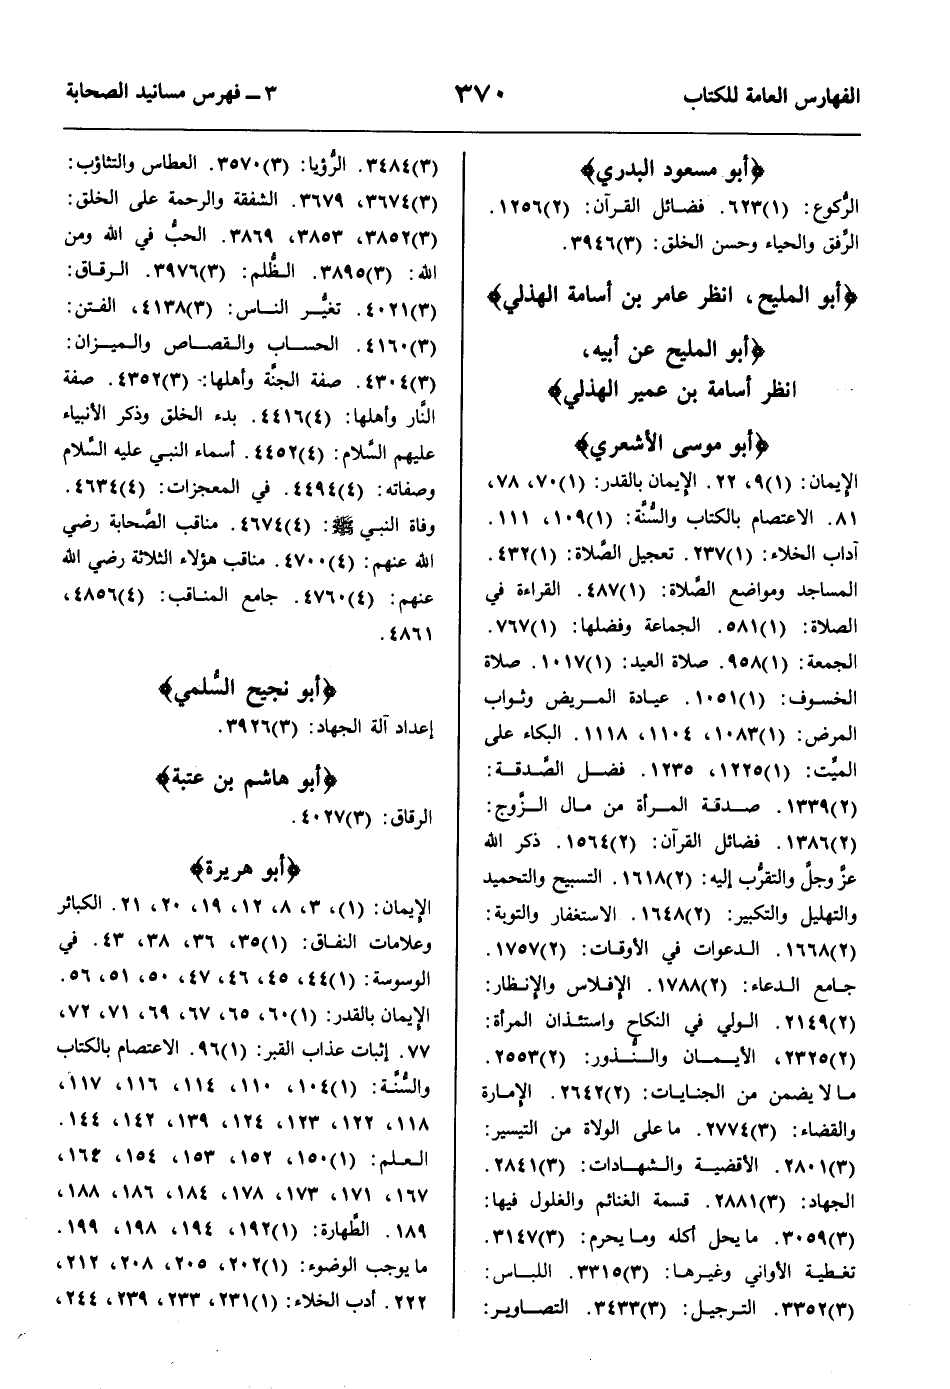 الفهارس العامة للكتاب ٣٧٠ ٣ ـ فهرس مسانيد الصحابة
﴿أبو مسعود البدري﴾
الرُّكوع: (١)٦٢٣. فضائل القرآن: (٢)١٢٥٦.
الرِّفق والحياء وحسن الخلق: (٣)٣٩٤٦.
﴿أبو المليح، انظر عامر بن أسامة الهذلي﴾
﴿أبو المليح عن أبيه،
انظر أسامة بن عمير الهذلي﴾
﴿أبو موسى الأشعري﴾
الإيمان: (١)٩، ٢٢. الإيمان بالقدر: (١)٧٠، ٧٨،
٨١. الاعتصام بالكتاب والسُّنَّة: (١)١٠٩، ١١١.
آداب الخلاء: (١)٢٣٧. تعجيل الصَّلاة: (١)٤٣٢.
المساجد ومواضع الصَّلاة: (١)٤٨٧. القراءة في
الصلاة: (١)٥٨١. الجماعة وفضلها: (١)٧٦٧.
الجمعة: (١)٩٥٨. صلاة العيد: (١)١٠١٧. صلاة
الخسوف: (١)١٠٥١. عيادة المريض وثواب
المرض: (١)١٠٨٣، ١١٠٤، ١١١٨. البكاء على
الميِّت: (١)١٢٢٥، ١٢٣٥. فضل الصَّدقة:
(٢)١٣٣٩. صدقة المرأة من مال الزَّوج:
(٢)١٣٨٦. فضائل القرآن: (٢)١٥٦٤. ذكر الله
عزَّ وجلَّ والتقرُّب إليه: (٢)١٦١٨. التسبيح والتحميد
والتهليل والتكبير: (٢)١٦٤٨. الاستغفار والتوبة:
(٢)١٦٦٨. الدعوات في الأوقات: (٢)١٧٥٧.
جامع الدعاء: (٢)١٧٨٨. الإفلاس والإنظار:
(٢)٢١٤٩. الولي في النكاح واستئذان المرأة:
(٢)٢٣٢٥، الأيمان والنُّذور: (٢)٢٥٥٣.
ما لا يضمن من الجنايات: (٢)٢٦٤٢. الإمارة
والقضاء: (٣)٢٧٧٤. ما على الولاة من التيسير:
(٣)٢٨٠١. الأقضية والشهادات: (٣)٢٨٤١.
الجهاد: (٣)٢٨٨١. قسمة الغنائم والغلول فيها:
(٣)٣٠٥٩. ما يحل أكله وما يحرم: (٣)٣١٤٧.
تغطية الأواني وغيرها: (٣)٣٣١٥. اللباس:
(٣)٣٣٥٢. الترجيل: (٣)٣٤٣٣. التصاوير:
(٣)٣٤٨٤. الرُّؤيا: (٣)٣٥٧٠. العطاس والتثاؤب:
(٣)٣٦٧٤، ٣٦٧٩. الشفقة والرحمة على الخلق:
(٣)٣٨٥٢، ٣٨٥٣، ٣٨٦٩. الحبُّ في الله ومن
الله: (٣)٣٨٩٥. الظُّلم: (٣)٣٩٧٦. الرقاق:
(٣)٤٠٢١. تغيُّر الناس: (٣)٤١٣٨، الفتن:
(٣)٤١٦٠. الحساب والقصاص والميزان:
(٣)٤٣٠٤. صفة الجنَّة وأهلها: (٣)٤٣٥٢. صفة
النَّار وأهلها: (٤)٤٤١٦. بدء الخلق وذكر الأنبياء
عليهم السَّلام: (٤)٤٤٥٢. أسماء النبي عليه السَّلام
وصفاته: (٤)٤٤٩٤. في المعجزات: (٤)٤٦٣٤.
وفاة النبي ﷺ: (٤)٤٦٧٤. مناقب الصَّحابة رضي
الله عنهم: (٤)٤٧٠٠. مناقب هؤلاء الثلاثة رضي الله
عنهم: (٤)٤٧٦٠. جامع المناقب: (٤)٤٨٥٦،
٤٨٦١.
﴿أبو نجيح السُّلمي﴾
إعداد آلة الجهاد: (٣)٣٩٢٦.
﴿أبو هاشم بن عتبة﴾
الرقاق: (٣)٤٠٢٧.
﴿أبو هريرة﴾
الإيمان: (١)، ٣، ٨، ١٢، ١٩، ٢٠، ٢١. الكبائر
وعلامات النفاق: (١)٣٥، ٣٦، ٣٨، ٤٣. في
الوسوسة: (١)٤٤، ٤٥، ٤٦، ٤٧، ٥٠، ٥١، ٥٦.
الإيمان بالقدر: (١)٦٠، ٦٥، ٦٧، ٦٩، ٧١، ٧٢،
٧٧. إثبات عذاب القبر: (١)٩٦. الاعتصام بالكتاب
والسُّنَّة: (١)١٠٤، ١١٠، ١١٤، ١١٦، ١١٧،
١١٨، ١٢٢، ١٢٣، ١٢٤، ١٣٩، ١٤٢، ١٤٤.
العلم: (١)١٥٠، ١٥٢، ١٥٣، ١٥٤، ١٦٤،
١٦٧، ١٧١، ١٧٣، ١٧٨، ١٨٤، ١٨٦، ١٨٨،
١٨٩. الطَّهارة: (١)١٩٢، ١٩٤، ١٩٨، ١٩٩.
ما يوجب الوضوء: (١)٢٠٢، ٢٠٥، ٢٠٨، ٢١٢،
٢٢٢. أدب الخلاء: (١)٢٣١، ٢٣٣، ٢٣٩، ٢٤٤،